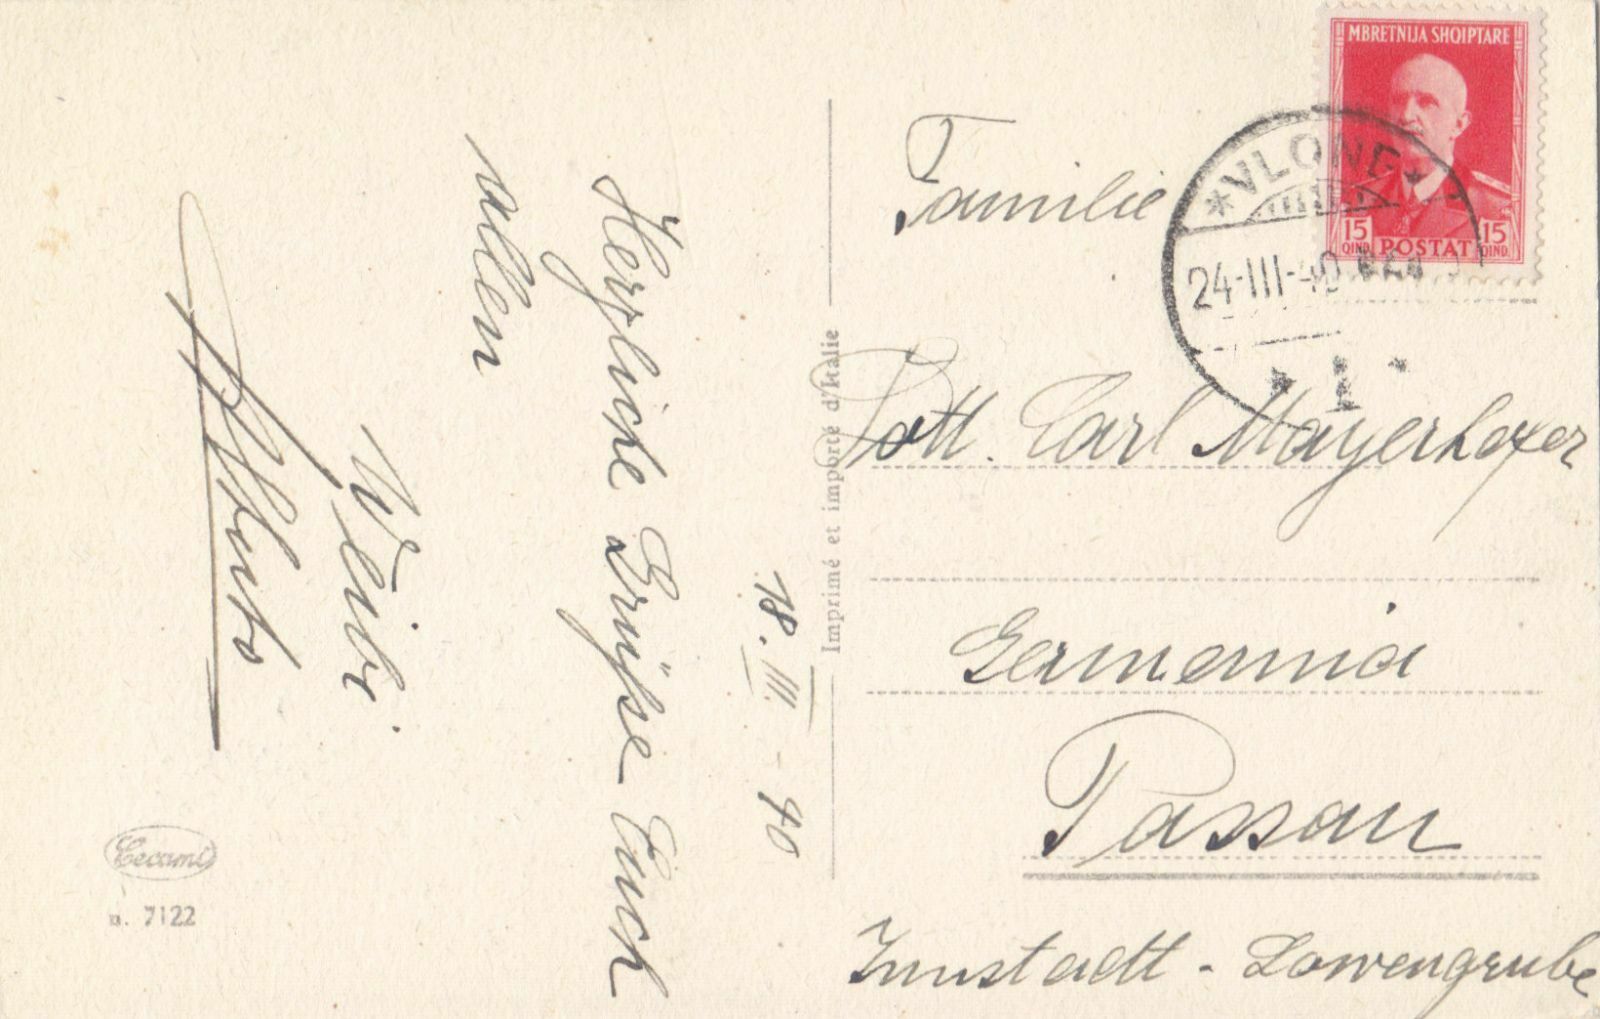 MBRETNIJA SHQIPTARE
15 QIND. POSTAT 15 QIND.
VLONE
24-III-40
1
18.III.-40
Herzliche Grüße Euch
allen
Weibi
Familie
Dott. Carl Mayerhofer
Germania
Passau
Innstadt - Lowengrube
Imprimé et importé d'Italie
Cecami
n. 7122